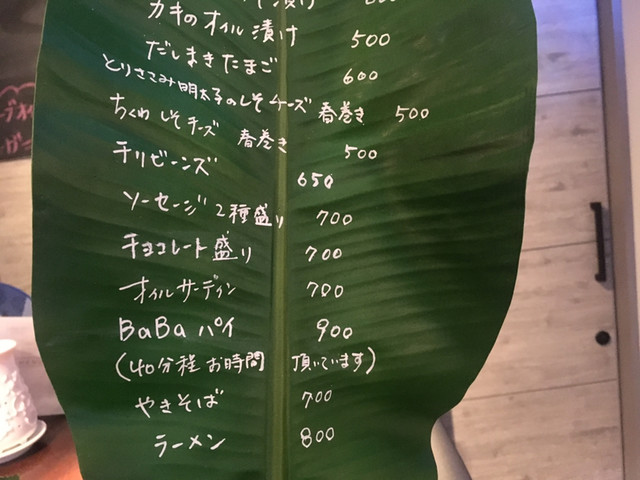 漬け
カキのオイル漬け 500
だしまきたまご 600
とりささみ明太子のしそチーズ 春巻き 500
ちくわしそチーズ 春巻き 500
チリビーンズ 650
ソーセージ2種盛り 700
チョコレート盛り 700
オイルサーディン 700
BaBa パイ 900
(40分程お時間 頂いています)
やきそば 700
ラーメン 800